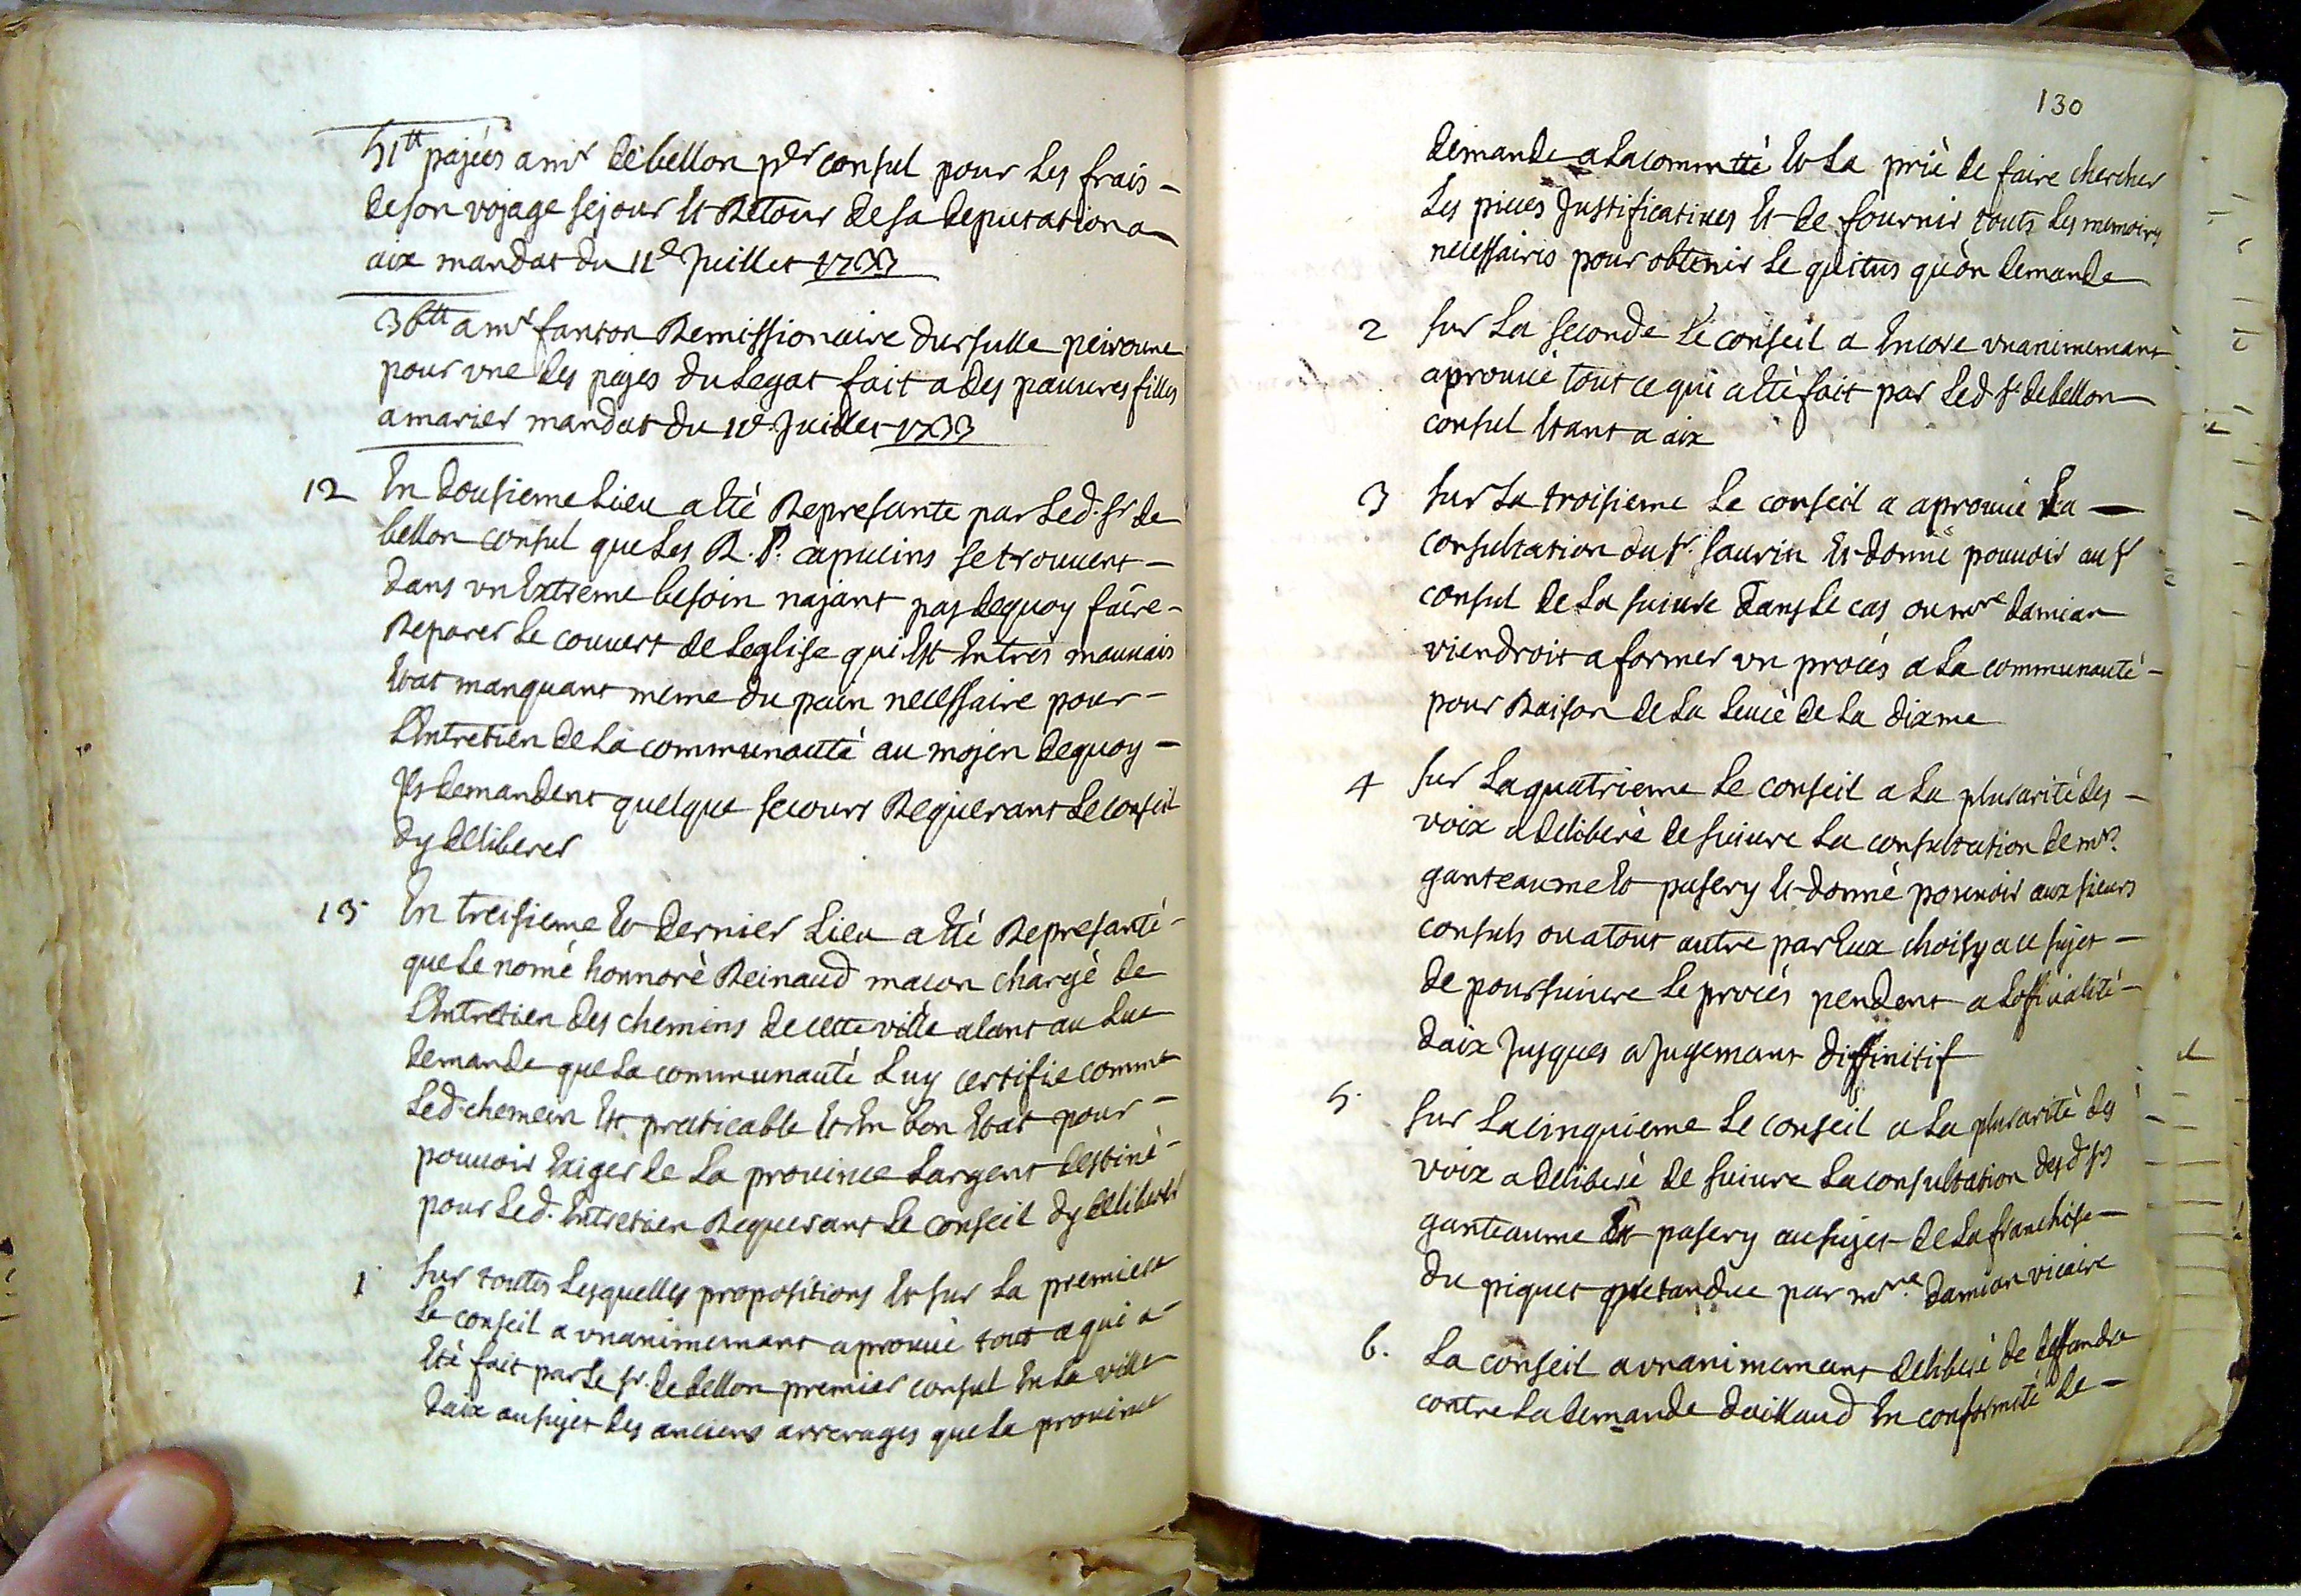 51tt pajées a mr debellon per consul pour les frais -
de son vojage sejour et Retour de sa deputation a
aix mandat du 11e Juillet 1733
36tt a mr fanton Remissionaire dursulle peiroune
pour une des pajes du legat fait a des pauvres filles
a marier mandat du 11e Juillet 1733
12 En dousieme lieu a eté Represante par led. sr de
bellon consul que les R. P. capucins se trouvent -
dans un extreme besoin najant pas dequoy faire -
Reparer le couvert de leglise qui est en tres mauvais
etat manquant meme du pain necessaire pour -
lentretien de la communauté au mojen dequoy -
Ils demandent quelque secours Requerant le conseil
dy deliberer
13 En treisieme et dernier lieu a eté Represanté -
que le nomé honnoré Reinaud macon chargé de
lentretien des chemins de cette ville alant au luc
demande que la communauté luy certifie comme
led. chemein est praticable et en bon etat pour -
pouvoir exiger de la province largent destiné -
pour led. entretien Requerant le conseil dy deliberer
1 Sur toutes lesquelles propositions et sur la premiere
le conseil a unanimemant aprouvé tout ce qui a -
eté fait par le sr. de bellon premier consul en la ville
daix au sujet des anciens arrerages que la province
130
demande a la commtté et la prié de faire chercher
les pieces Justificatives et de fournir touts les memoires
necessaires pour obtenir le quitus quon demande
2 Sur la seconde le conseil a encore unanimemant
aprouvé tout ce qui a eté fait par led. sr debellon
consul etant a aix
3 Sur la troisieme le conseil a aprouvé la -
consultation du sr. saurin et donné pouvoir au sr
consul de la suivre dans le cas ou mre damian
viendroit a former un procés a la communauté -
pour Raison de la levée de la dixme
4 Sur la quatrieme le conseil a la plurarité des -
voix a deliberé de suivre la consultation de mrs
ganteaume et pasery et donné pouvoir aux sieurs
consuls ou a tout autre par eux choisy a ce sujet -
de poursuivre le procés pendent a lofficialité -
daix Jusques a Jugemant diffinitif
5. Sur la cinquieme le conseil a la plurarité des
voix a deliberé de suivre la consultation desd. srs
ganteaume et pasery au sujet de la franchise -
du piquet pretandue par mre. damian vicaire
6. La conseil a unanimemant deliberé de deffandre
contre la demande daillaud en conformité de -